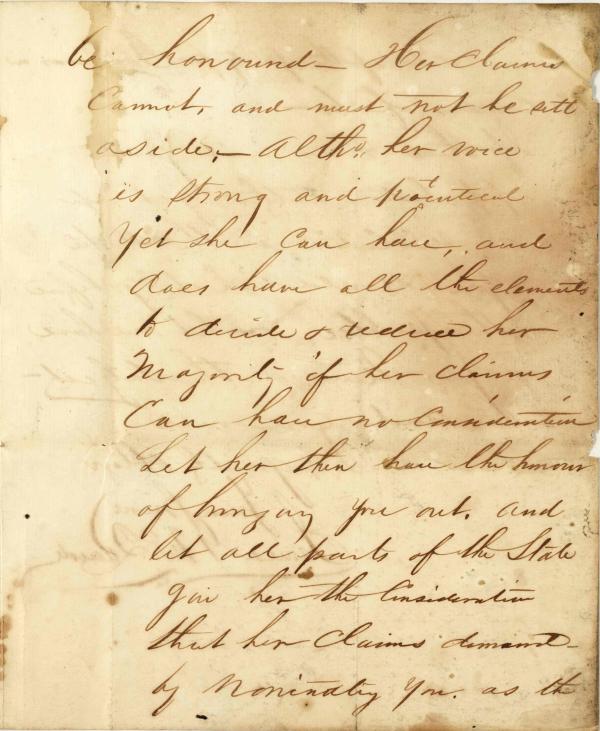 be honound – Her Claims
Cannot, and must not be sett
aside, – Altho, her voice
is strong and
Yet she Can have, and
does have all the elements
to divide & reduce her
Majority if her claims
Can have no Consideration
Let her then have the honour
of bringing you out. and
let all parts of the State
give her the Consideration
that her Claims demand –
by Nominating You. as the